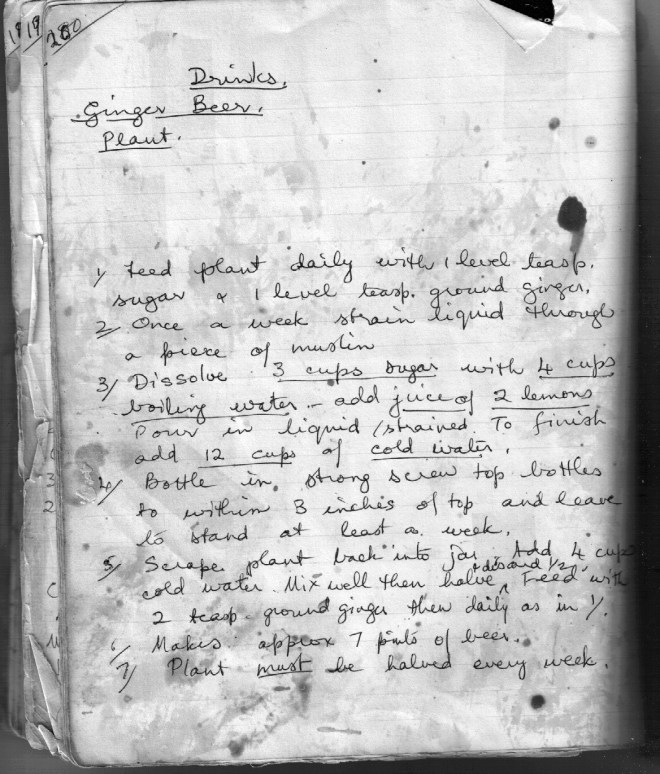 1919
280
Drinks.
Ginger Beer.
Plant.
1/ Feed plant daily with 1 level teasp.
sugar & 1 level teasp. ground ginger.
2/ Once a week strain liquid through
a piece of muslin
3/ Dissolve 3 cups sugar with 4 cups
boiling water - add juice of 2 lemons
Pour in liquid /strained. To finish
add 12 cups of cold water.
4/ Bottle in strong screw top bottles
to within 3 inches of top and leave
to stand at least a week.
5/ Scrape plant back into jar. Add 4 cups
cold water. Mix well then halve & discard 1/2, Feed with
2 teasp. ground ginger then daily as in 1/.
6/ Makes approx 7 pints of beer.
7/ Plant must be halved every week.
3
2
C